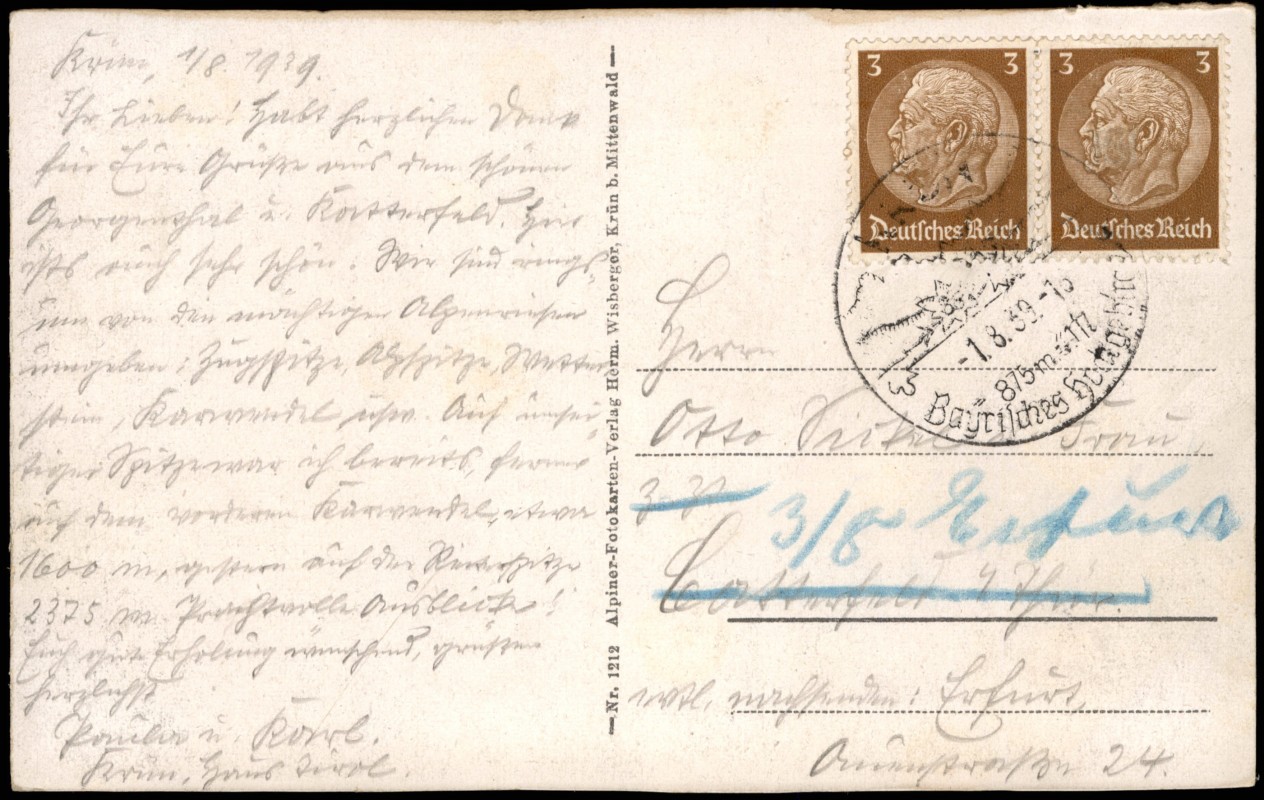 Krün, 1/8. 1939.
Ihr Lieben! Habt herzlichen Dank
für Eure Grüße aus dem schönen
Georgenthal u. Katterfeld. Hier
ists auch sehr schön. Wir sind rings-
um von den mächtigen Alpenriesen
umgeben: Zugspitze, Alpspitze, Wetter-
stein, Karwendel usw. Auf
Spitze war ich bereits, ferner
auf dem vorderen Karwendel, etwa
1600 m, gestern auf der
2375 m. Prachtvolle Ausblicke!
Euch gute Erholung wünschend, grüßen
herzlichst
Paula u. Karl.
Krün, Haus Tirol.
—Nr. 1212 Alpiner-Fotokarten-Verlag Herm. Wisberger, Krün b. Mittenwald—
3 3
Deutsches Reich
3 3
Deutsches Reich
-1.8.39.-18
875 m ü.M.
Bayrisches Hochgebirge
Herrn
Otto u. Frau,
3/8 Erfurt
Catterfeld i/Thür.
evtl. nachsenden: Erfurt,
Auenstraße 24.